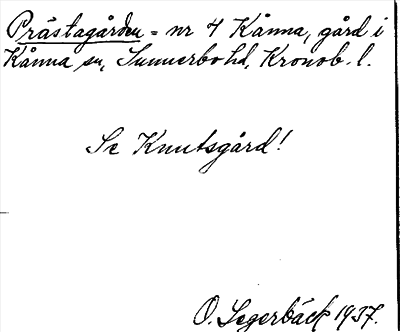 Prästagården = nr 4 Kånna, gård i
Kånna sn, Sunnerbo hd, Kronob. l.
Se Knutsgård!
O. Segerbäck 1937.